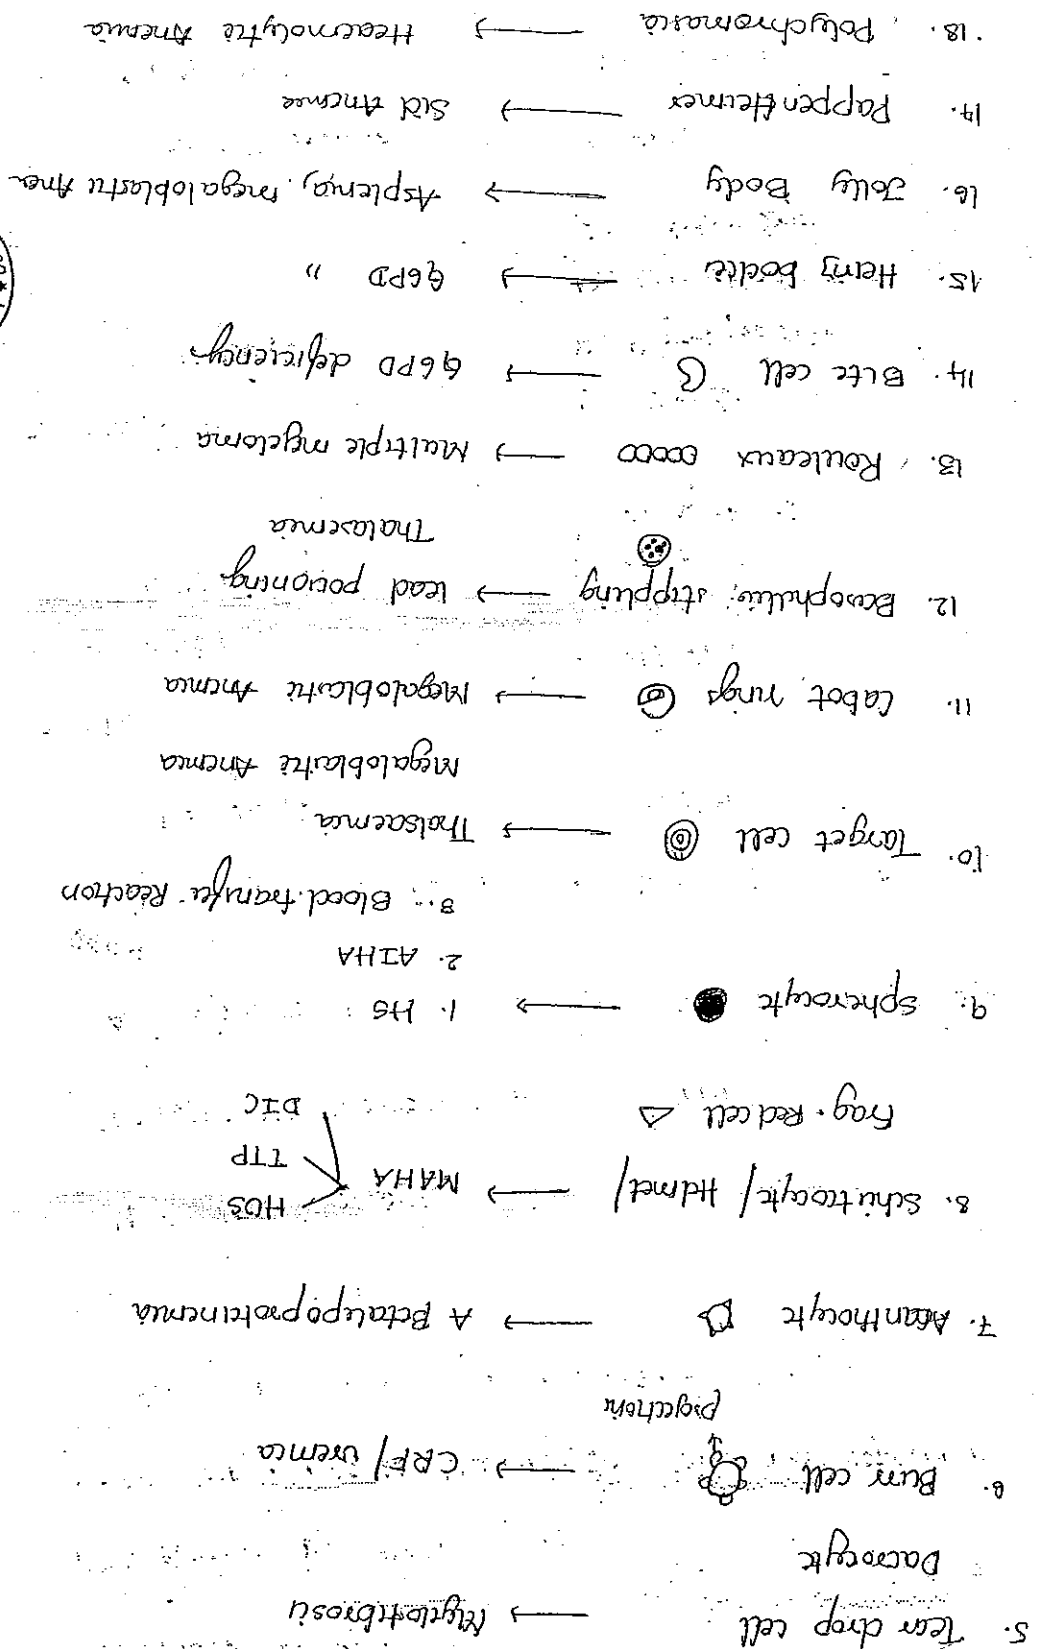 5. Tear drop cell → Myelofibrosis
Dacrocyte
6. Burr cell → CRF/uremia
projections
7. Acanthocyte → A Betalipoproteinemia
8. Schistocyte/ Helmet/ → MAHA HUS
TTP
Frag. Red cell DIC
9. Spherocyte → 1. HS
2. AIHA
3. Blood transfu Reaction
10. Target cell → Thalsaemia
Megaloblastic Anemia
11. Cabot rings → Megaloblastic Anemia
12. Basophilic stippling → lead poisoning
Thalasemia
13. Rouleaux → Multiple myeloma
14. Bite cell → G6PD deficiency
15. Heinz bodies → G6PD "
16. Jolly Body → Asplenia, megaloblastic Ane
17. Pappenheimer → Sid Anemia
18. Polychromasia → Heaemolytic Anemia